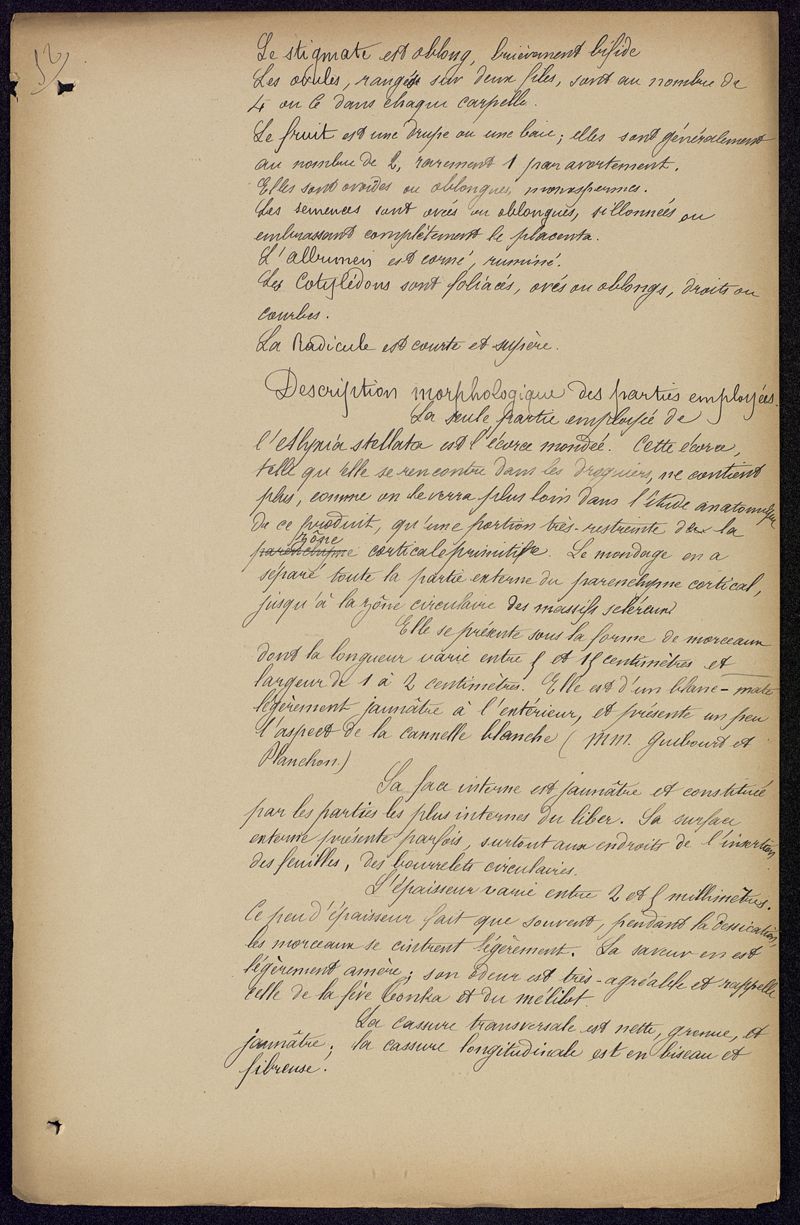 12
Le stigmate est oblong, brièvement bifide
Les ovules, rangés sur deux files, sont au nombre de
4 ou 6 dans chaque carpelle.
Le fruit est une drupe ou une baie; elles sont généralement
au nombre de 2, rarement 1 par avortement.
Elles sont ovoïdes ou oblongues, monospermes.
Les semences sont ovées ou oblongues, sillonnées ou
embrassant complètement le placenta.
L'albumen est corné, ruminé.
Les Cotylédons sont foliacés, ovés ou oblongs, droits ou
courbes.
La Radicule est courte et supère.
Description morphologique des parties employées.
La seule partie employée de
l'Alyxia stellata est l'écorce mondée. Cette écorce,
telle qu'elle se rencontre dans les droguiers, ne contient
plus, comme on le verra plus loin dans l'étude anatomique
de ce produit, qu'une portion très-restreinte de la
zône
parenchyme corticale primitive. Le mondage en a
séparé toute la partie externe du parenchyme cortical,
jusqu'à la zône circulaire des massifs scléreux
Elle se présente sous la forme de morceaux
dont la longueur varie entre 5 et 15 centimètres et
largeur de 1 à 2 centimètres. Elle est d'un blanc-mate
légèrement jaunâtre à l'extérieur, et présente un peu
l'aspect de la cannelle blanche (MM. Guibourt et
Planchon)
Sa face interne est jaunâtre et constituée
par les parties les plus internes du liber. Sa surface
externe présente parfois, surtout aux endroits de l'insertion
des feuilles, des bourrelets circulaires.
L'épaisseur varie entre 2 et 5 millimètres.
Ce peu d'épaisseur fait que souvent, pendant la dessication,
les morceaux se cintrent légèrement. La saveur en est
légèrement amère; son odeur est très-agréable et rappelle
celle de la fève Tonka et du mélilot
La cassure transversale est nette, grenue, et
jaunâtre; la cassure longitudinale est en biseau et
fibreuse.